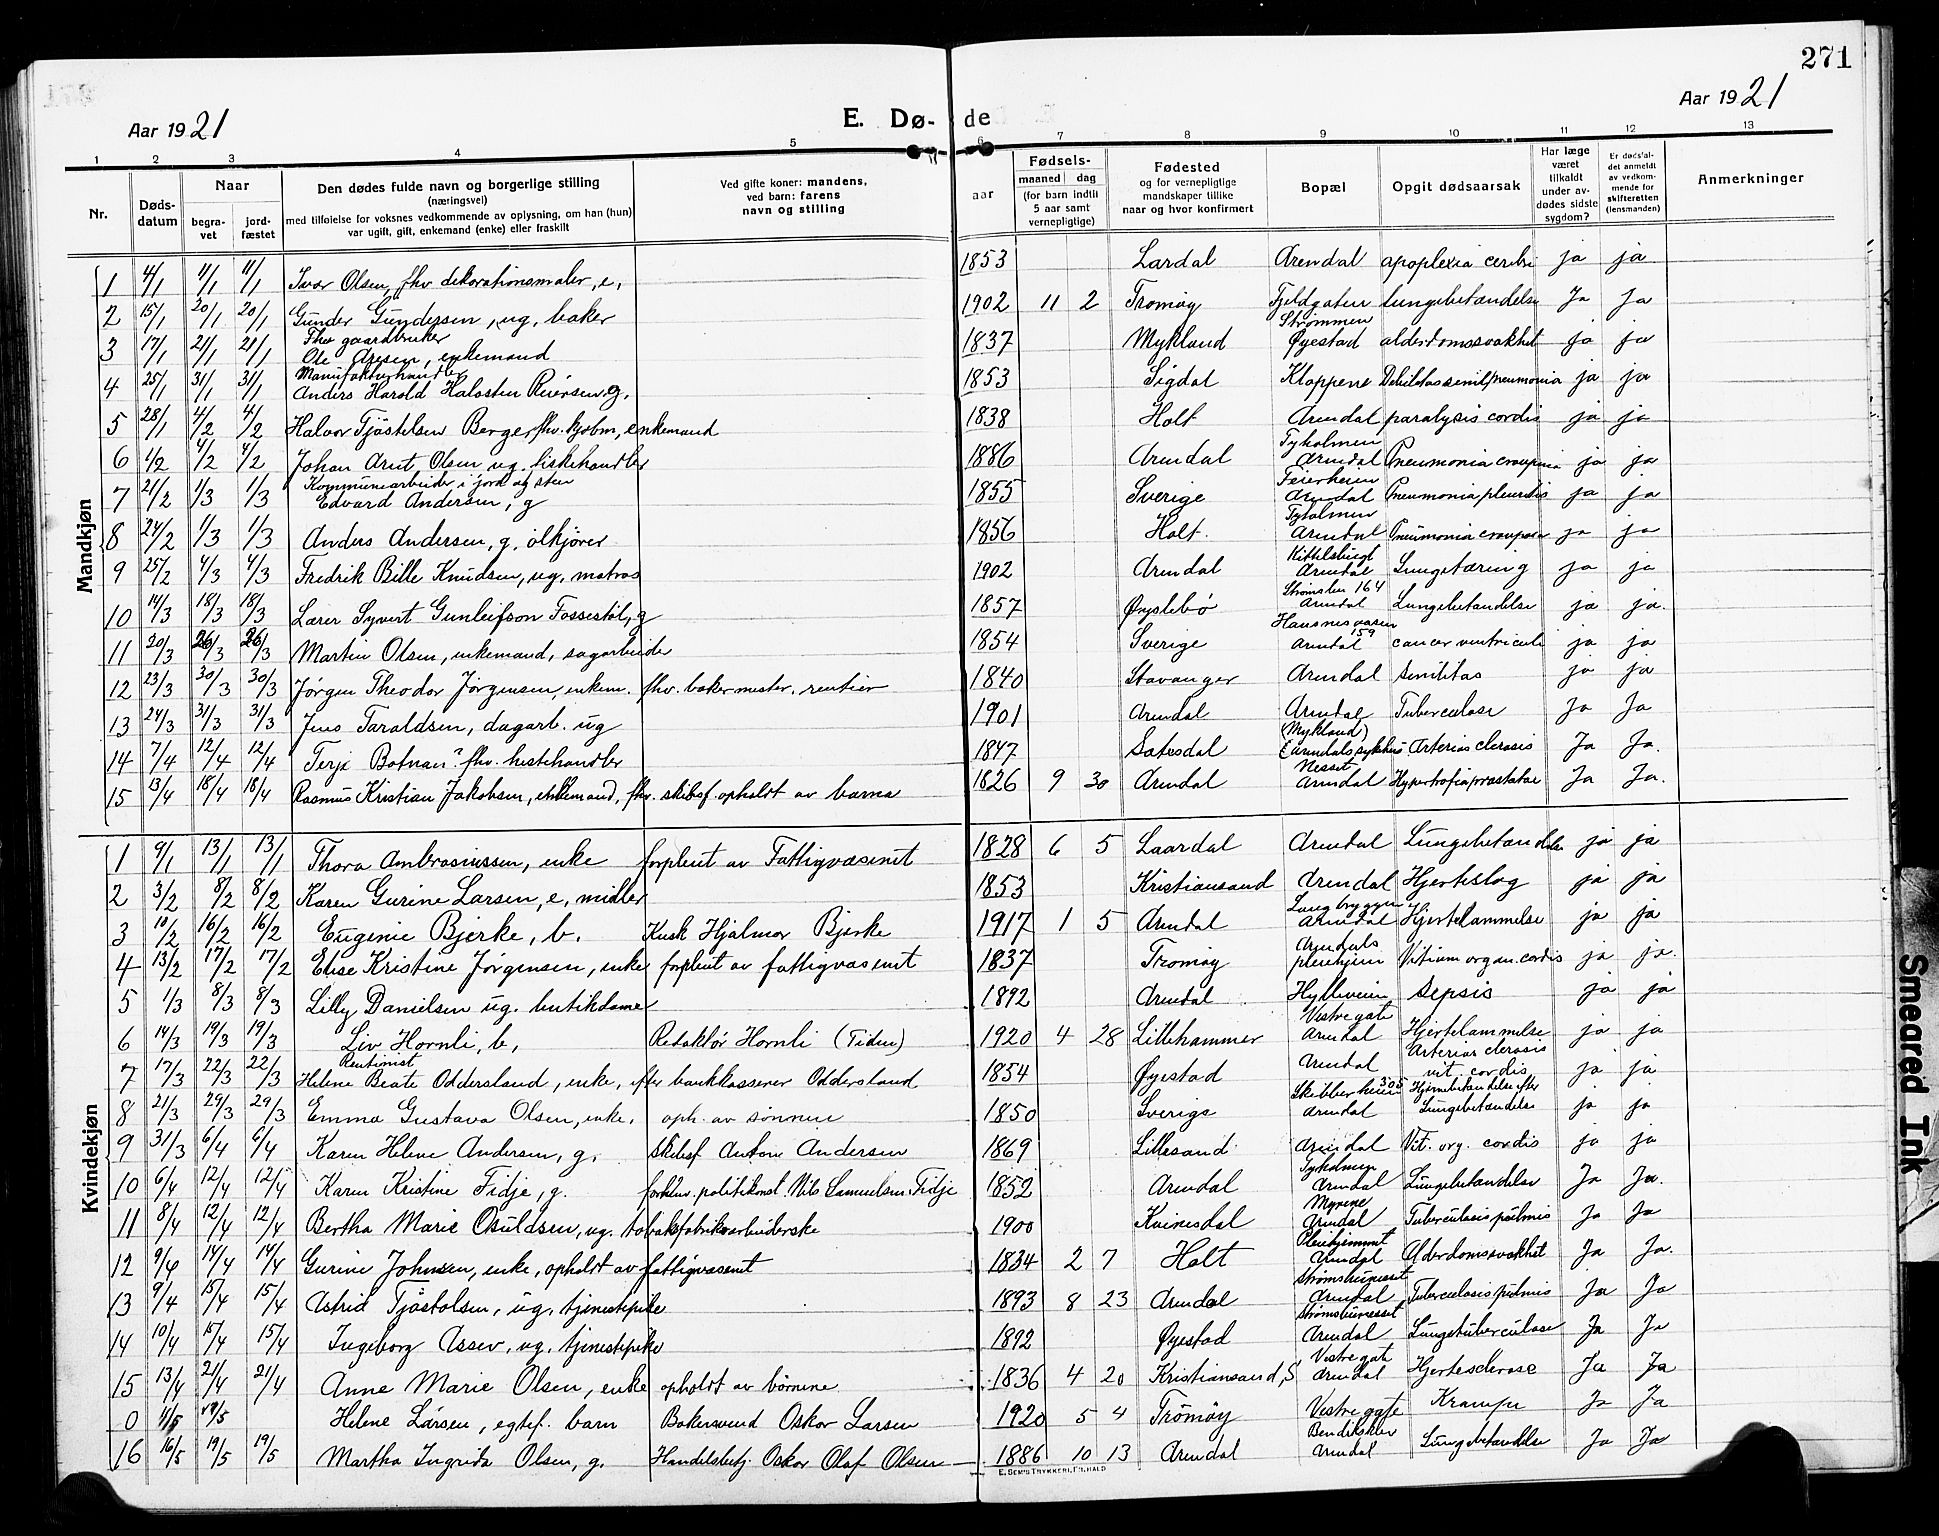 271
Aar 1921
E. Dø- de
Aar 1921
1 2 3 4 5 6 7 8 9 10 11 12 13
Nr.
Døds-datum
Naar
begra-vet
jord-fæstet
Den dødes fulde navn og borgerlige stilling
(næringsvei)
med tilføielse for voksnes vedkommende av oplysning, om han (hun)
var ugift, gift, enkemand (enke) eller fraskilt
Ved gifte koner: mandens,
ved barn: farens
navn og stilling
aar
Fødsels-
maaned dag
(for barn indtil
5 aar samt
vernepligtige)
Fødested
og for vernepligtige
mandskaper tillike
naar og hvor konfirmert
Bopæl
Opgit dødsaarsak
Har læge
været
tilkaldt
under av-
dødes sidste
sygdom?
Er dødsfal-
det anmeldt
av vedkom-
mende for
skifteretten
(lensmanden)
Anmerkninger
Mandkjøn
1 4/1 11/1 11/1 Ivar Olsen, fhv dekorationsmaler, e, 1853 Lardal Arendal apoplexia cerebri ja ja
2 15/1 20/1 20/1 Gunder Gundersen, ug, baker 1902 11 2 Tromøy Fjeldgaten Lungebetændelse Ja Ja
3 17/1 21/1 21/1 Fhv gaardbruker Ole Aresen, enkemand 1837 Mykland Strømmen Øyestad alderdomssvakhet ja ja
4 25/1 31/1 31/1 Manufakturhandler Anders Harold Halosten Reiersen g, 1853 Sigdal Kloppene Debilitas senil, pneumonia ja ja
5 28/1 4/2 4/2 Halvor Tjøstelsen Berge, fhv. kjøbm, enkemand 1838 Holt Arendal paralysis cordis ja ja
6 1/2 4/2 4/2 Johan Arnt Olsen ug. fiskehandler 1886 Arendal Tyholmen Arendal Pneumonia crouposa ja ja
7 21/2 1/3 1/3 Kommunearbeider i jord og sten Edvard Andersen, g 1855 Sverige Feierheien Arendal Pneumonia pleuritis ja ja
8 24/2 1/3 1/3 Anders Andersen, g, ølkjører 1856 Holt. Tyholmen Arendal Pneumonia crouposa ja ja
9 25/2 4/3 4/3 Fredrik Bille Knudsen, ug, matros 1902 Arendal Kittelsbugt Arendal Lungetæring ja ja
10 14/3 18/3 18/3 Lærer Syvert Gunleifson Fossestøl, g 1857 Øyslebø 164 Arendal Lungebetændelse ja ja.
11 20/3 26/3 26/3 Martin Olsen, enkemand, sagarbeider 1854 Sverige 159 Arendal cancer ventriculi ja ja
12 23/3 30/3 30/3 Jørgen Theodor Jørgensen, enkem. fhv. bakermester, rentier 1840 Stavanger Arendal Senilitas ja ja
13 24/3 31/3 31/3 Jens Taraldsen, dagarb. ug 1901 Arendal Arendal Tuberculose Ja Ja
14 7/4 12/4 12/4 Terje Botnan? fhv. hestehandler 1847 Sætesdal (Mykland) Arendals sykehus Arterios clerosis Ja Ja.
15 13/4 18/4 18/4 Rasmus Kristian Jakobsen, enkemand, fhv. skibsf. opholdt av barna 1826 9 30 Arendal Nesset Arendal Hypertrofia prostatae Ja Ja.
Kvindekjøn
1 9/1 13/1 13/1 Thora Ambrosiussen, enke forpleiet av Fattigvæsenet 1828 6 5 Laardal Arendal Lungebetændelse ja ja
2 3/2 8/2 8/2 Karen Gurine Larsen, e, midler 1853 Kristiansand Arendal Hjerteslag ja ja
3 10/2 16/2 16/2 Eugenie Bjerke, b. Kusk Hjalmar Bjerke 1917 1 5 Arendal Langbryggen Arendal Hjertelammelse ja ja
4 13/2 17/2 17/2 Elise Kristine Jørgensen, enke forpleiet av fattigvæsenet 1837 Tromøy Arendals pleiehjem Vitium organ. cordis ja ja.
5 1/3 8/3 8/3 Lilly Danielsen ug. butikdame 1892 Arendal Hylleveien Sepsis ja ja
6 14/3 19/3 19/3 Liv Hornli, b, Redaktør Hornli (Tiden) 1920 4 28 Lillehammer Vestregate Arendal Hjertelammelse ja ja
7 17/3 22/3 22/3 Rentenist Helene Beate Oddersland, enke, efter bankkasserer Oddersland 1854 Øyestad Arendal Arterios clerosis vit. cordis ja ja
8 21/3 29/3 29/3 Emma Gustava Olsen, enke, oph. av sønnene 1850 Sverige Skibberheien 305 Arendal Hjernebetændelse efter Lungebetændelse ja ja
9 31/3 6/4 6/4 Karen Helene Andersen, g, skibsf Anton Andersen 1869 Lillesand Arendal Vit. org. cordis ja ja
10 6/4 12/4 12/4 Karen Kristine Fidje, g. politikonst. Nils Samuelsen Fidje 1852 Arendal Tyholmen Arendal Lungebetændelse Ja Ja.
11 8/4 12/4 12/4 Bertha Marie Osuldsen, ug. tobaksfabriksarbeiderske 1900 Kvinesdal Myrene Arendal Tuberculosis pulmis Ja Ja
12 9/4 14/4 14/4 Gurine Johnsen, enke, opholdt av fattigvæsenet 1834 2 7 Holt Pleiehjemmet Arendal Alderdomssvakhet Ja Ja.
13 9/4 15/4 15/4 Astrid Tjøstolsen, ug, tjenestepike 1893 8 23 Arendal Strømsbuneset Arendal Tuberculosis pulmis Ja Ja
14 10/4 15/4 15/4 Ingeborg Assev, ug, tjenestepike 1892 Øyestad Strømsbunesset Arendal Lungetuberculose Ja Ja
15 13/4 21/4 21/4 Anne Marie Olsen, enke opholdt av børnene 1836 4 20 Kristiansand, S Vestregate Arendal Hjertesclerose Ja Ja
0 11/5 19/5 Helene Larsen, egtef. barn Bakersvend Oskar Larsen 1920 5 4 Tromøy Vestregate Krampe Ja Ja
16 16/5 19/5 19/5 Martha Ingrida Olsen, g. Handelsbetj. Oskar Olaf Olsen 1886 10 13 Arendal Bendiksklev Arendal Lungebetændelse Ja Ja
E. SEM'S TRYKKERI, FR.HALD
Smeared Ink